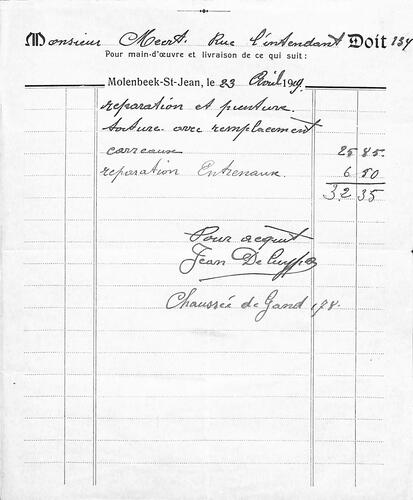 Monsieur Meert. Rue l'intendant Doit 134
Pour main-d'œuvre et livraison de ce qui suit :
Molenbeek-St-Jean, le 23 Avril 1919.
reparation et peinture.
toiture avec remplacement
carreaux 25 85.
reparation Entrenaux. 6 50
32 35
Pour acquit
Jean De Cuyper
Chaussée de Gand 178.